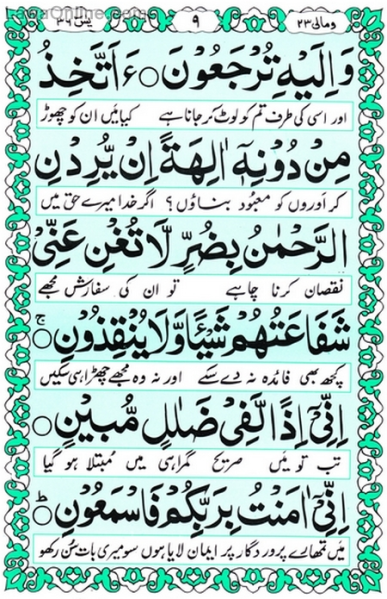 ومالی ۲۳ ۹ یٰس ۳۶
وَاِلَيْهِ تُرْجَعُوْنَ ○ ءَاَتَّخِذُ
اور اسی کی طرف تم کو لوٹ کر جانا ہے کیا میں ان کو چھوڑ
مِنْ دُوْنِهٖۤ اٰلِهَةً اِنْ يُّرِدْنِ
کر اوروں کو معبود بناؤں؟ اگر خدا میرے حق میں
الرَّحْمٰنُ بِضُرٍّ لَّا تُغْنِ عَنِّىْ
نقصان کرنا چاہے تو ان کی سفارش مجھے
شَفَاعَتُهُمْ شَيْـًٔا وَّلَا يُنْقِذُوْنِ ○ۚ
کچھ بھی فائدہ نہ دے سکے اور نہ وہ مجھے چھڑا ہی سکیں
اِنِّىْۤ اِذًا لَّفِىْ ضَلٰلٍ مُّبِيْنٍ ○
تب تو میں صریح گمراہی میں مبتلا ہو گیا
اِنِّىْۤ اٰمَنْتُ بِرَبِّكُمْ فَاسْمَعُوْنِ ○ؕ
میں تمھارے پروردگار پر ایمان لایا ہوں سو میری بات سُن رکھو